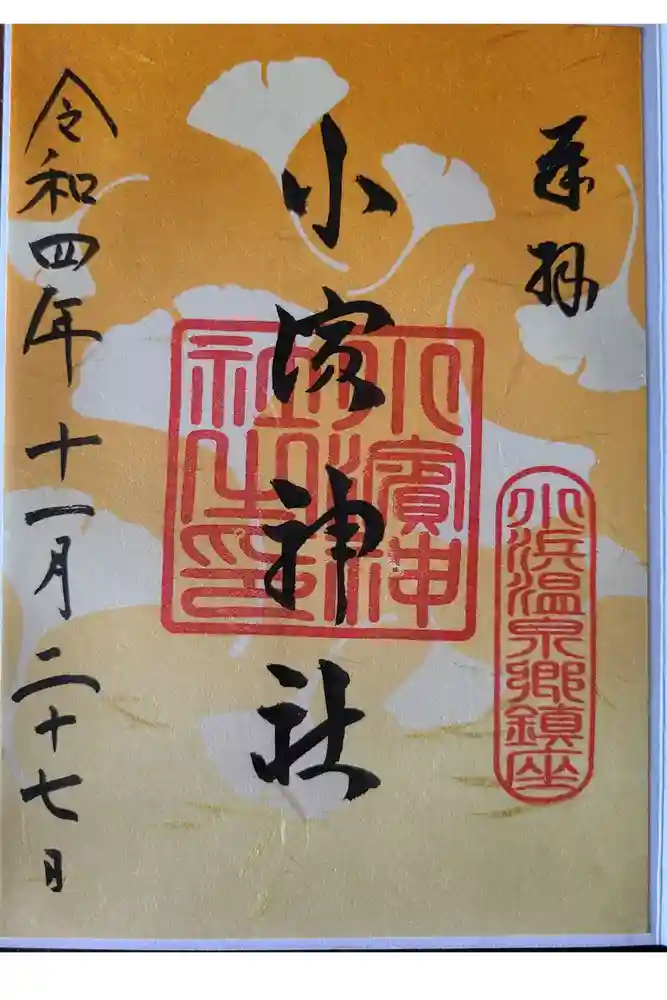 奉拝
小濱神社
小濱神社之印
小浜温泉郷鎮座
令和四年十一月二十七日